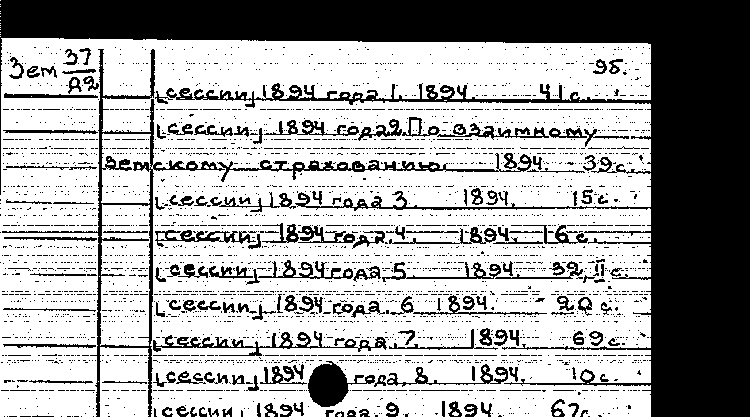 Зем 37 95.
Д2
[сессии] 1894 года. 1. 1894. 41с.
[сессии] 1894 года 2. По взаимному
земскому страхованию. 1894. 39с.
[сессии] 1894 года 3. 1894. 15с.
[сессии] 1894 года. 4. 1894. 16с.
[сессии] 1894 года 5 1894. 32, II с.
[сессии] 1894 года. 6 1894. 20с.
[сессии] 1894 года. 7. 1894. 69с.
[сессии] 1894 года. 8. 1894. 10с.
[сессии] 1894 года. 9. 1894. 67с.